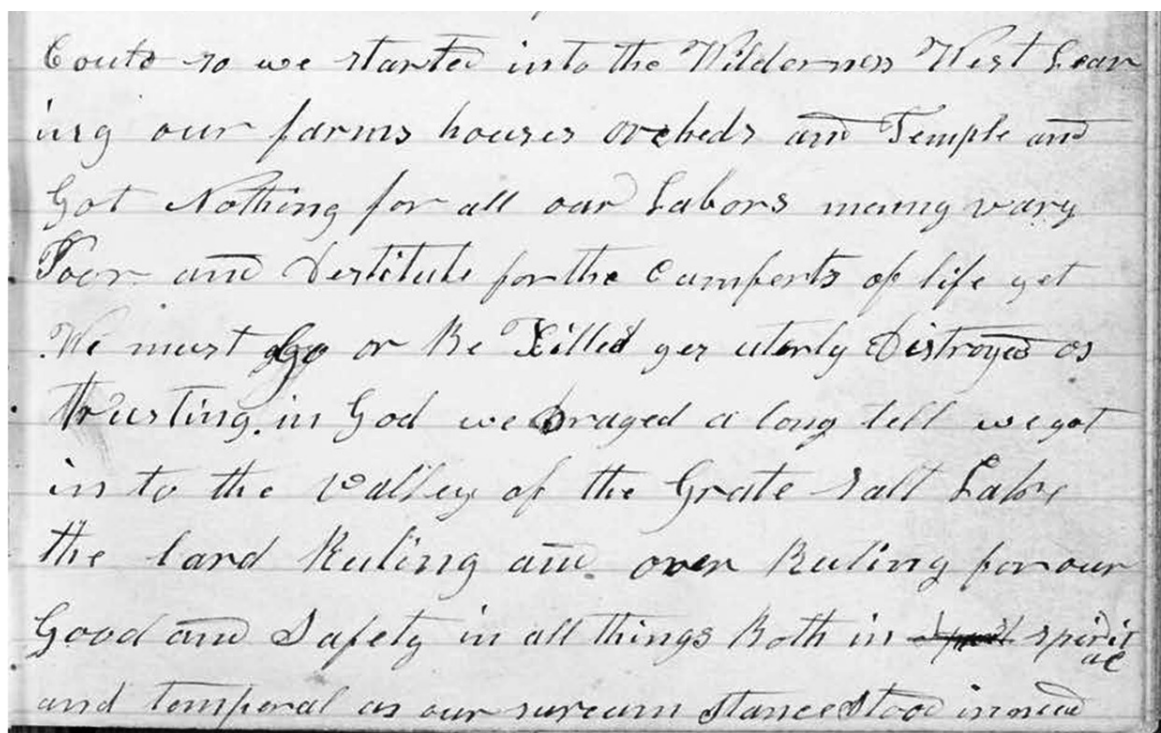 Could so we started into the Wilderness West Leav
ing our farms houses orcheds and Temple and
Got Nothing for all our Labors manny vary
Poor and Destitute for the Comforts of life yet
We must Go or Be Killed yes uterly Distroyed os
trusting in God we Draged a long tell we got
in to the valley of the Grate Salt Lake
the lard Ruling and over Ruling for our
Good and Safety in all things Both in spirit
ual
and temporal as our surcum stance stood in need